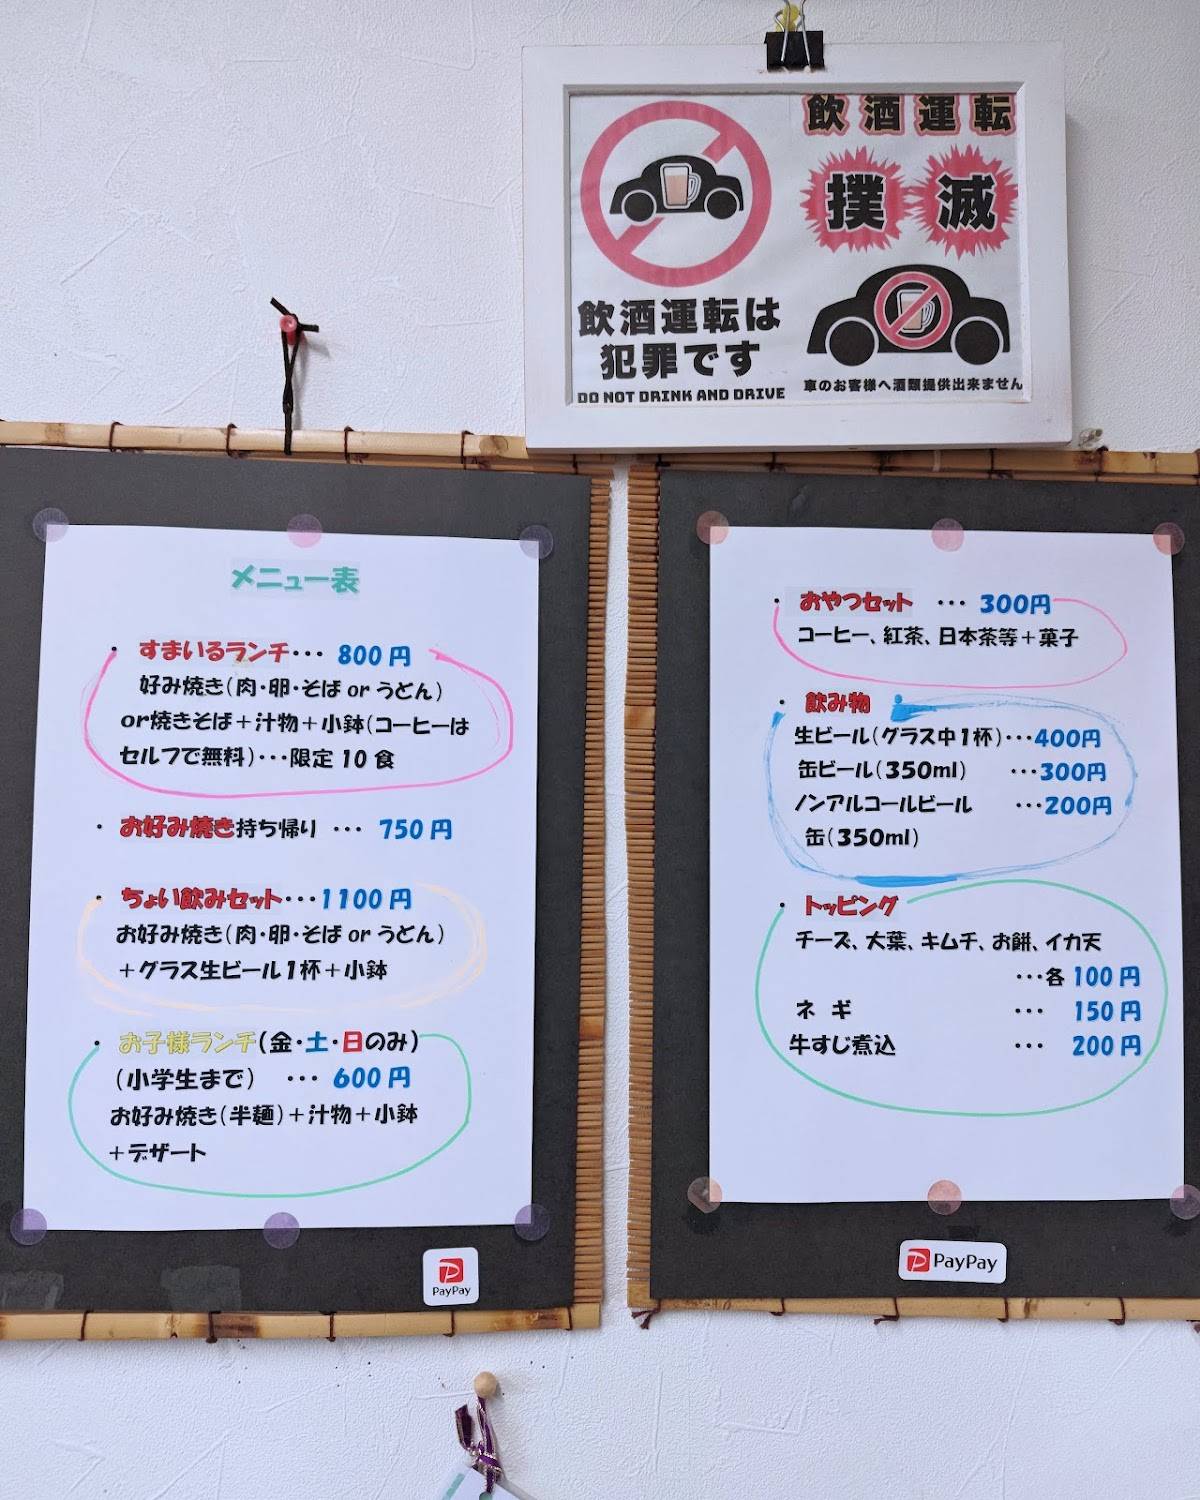 飲酒運転は
犯罪です
DO NOT DRINK AND DRIVE
飲酒運転
撲滅
車のお客様へ酒類提供出来ません
メニュー表
・すまいるランチ・・・800円
好み焼き(肉・卵・そば or うどん)
or焼きそば+汁物+小鉢(コーヒーは
セルフで無料)・・・限定10食
・お好み焼き持ち帰り ・・・ 750円
・ちょい飲みセット・・・1100円
お好み焼き(肉・卵・そば or うどん)
+グラス生ビール1杯+小鉢
・お子様ランチ(金・土・日のみ)
(小学生まで) ・・・ 600円
お好み焼き(半麺)+汁物+小鉢
+デザート
PayPay
・おやつセット ・・・ 300円
コーヒー、紅茶、日本茶等+菓子
・飲み物
生ビール(グラス中1杯)・・・400円
缶ビール(350ml) ・・・300円
ノンアルコールビール ・・・200円
缶(350ml)
・トッピング
チーズ、大葉、キムチ、お餅、イカ天
・・・各100円
ネギ ・・・ 150円
牛すじ煮込 ・・・ 200円
PayPay